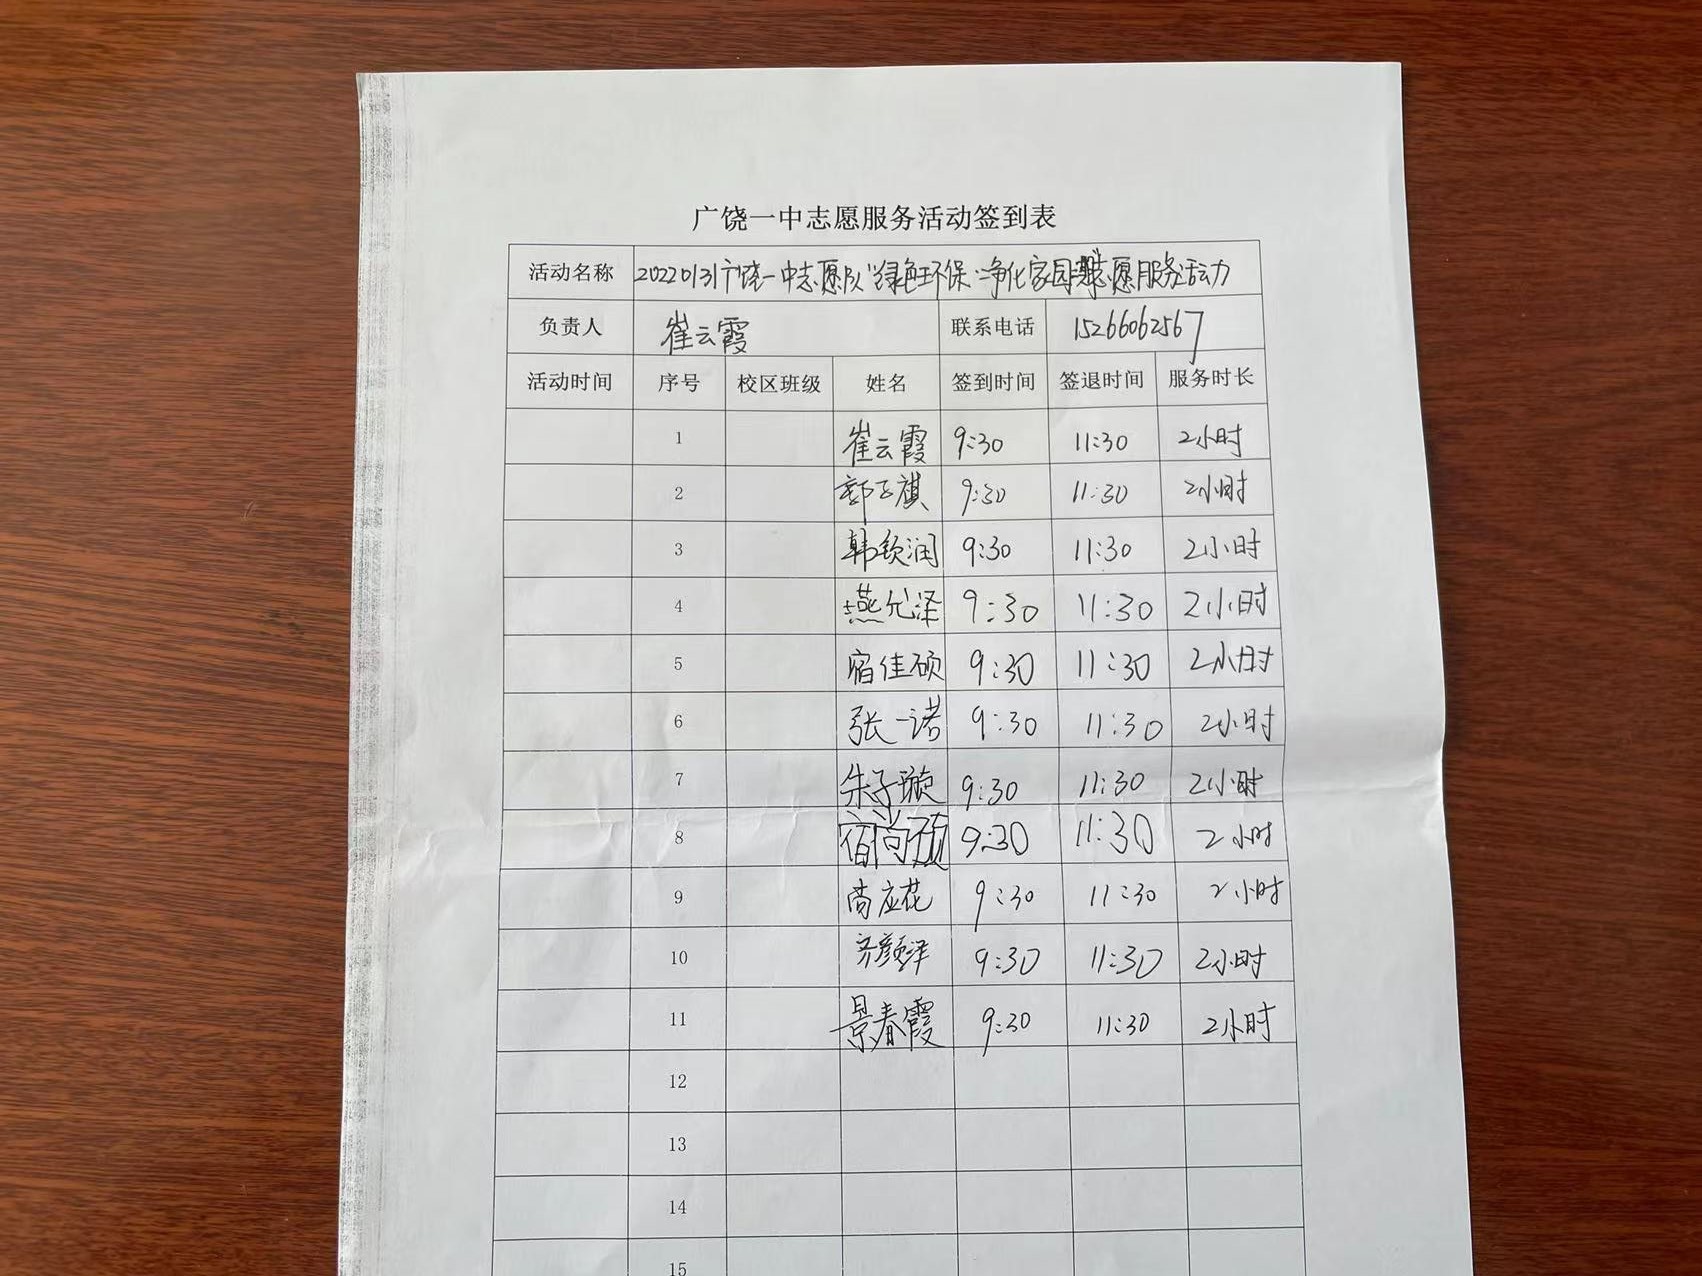 广饶一中志愿服务活动签到表
活动名称 20220131广饶一中志愿队"绿色环保·净化家园"志愿服务活动
负责人 崔云霞 联系电话 15266062567
活动时间 序号 校区班级 姓名 签到时间 签退时间 服务时长
1 崔云霞 9:30 11:30 2小时
2 郭子祺 9:30 11:30 2小时
3 韩钦润 9:30 11:30 2小时
4 燕允泽 9:30 11:30 2小时
5 宿佳硕 9:30 11:30 2小时
6 张一诺 9:30 11:30 2小时
7 朱子璇 9:30 11:30 2小时
8 宿尚 9:30 11:30 2小时
9 应花 9:30 11:30 2小时
10 齐颜泽 9:30 11:30 2小时
11 景春霞 9:30 11:30 2小时
12
13
14
15